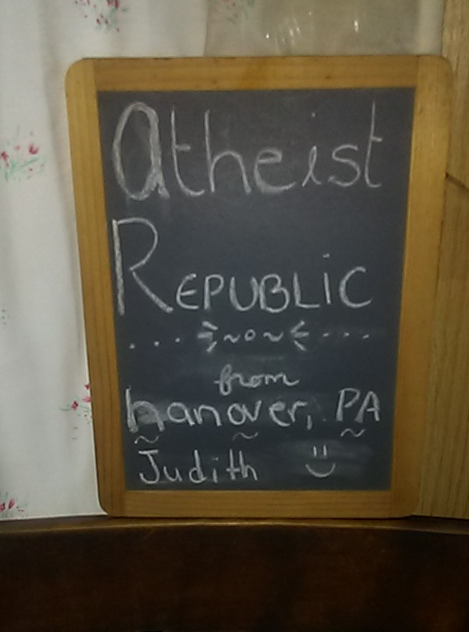 Atheist
REPUBLIC
... ⋛~o~⋚ ...
from
hanover, PA
~ ~ ~
Judith  =)